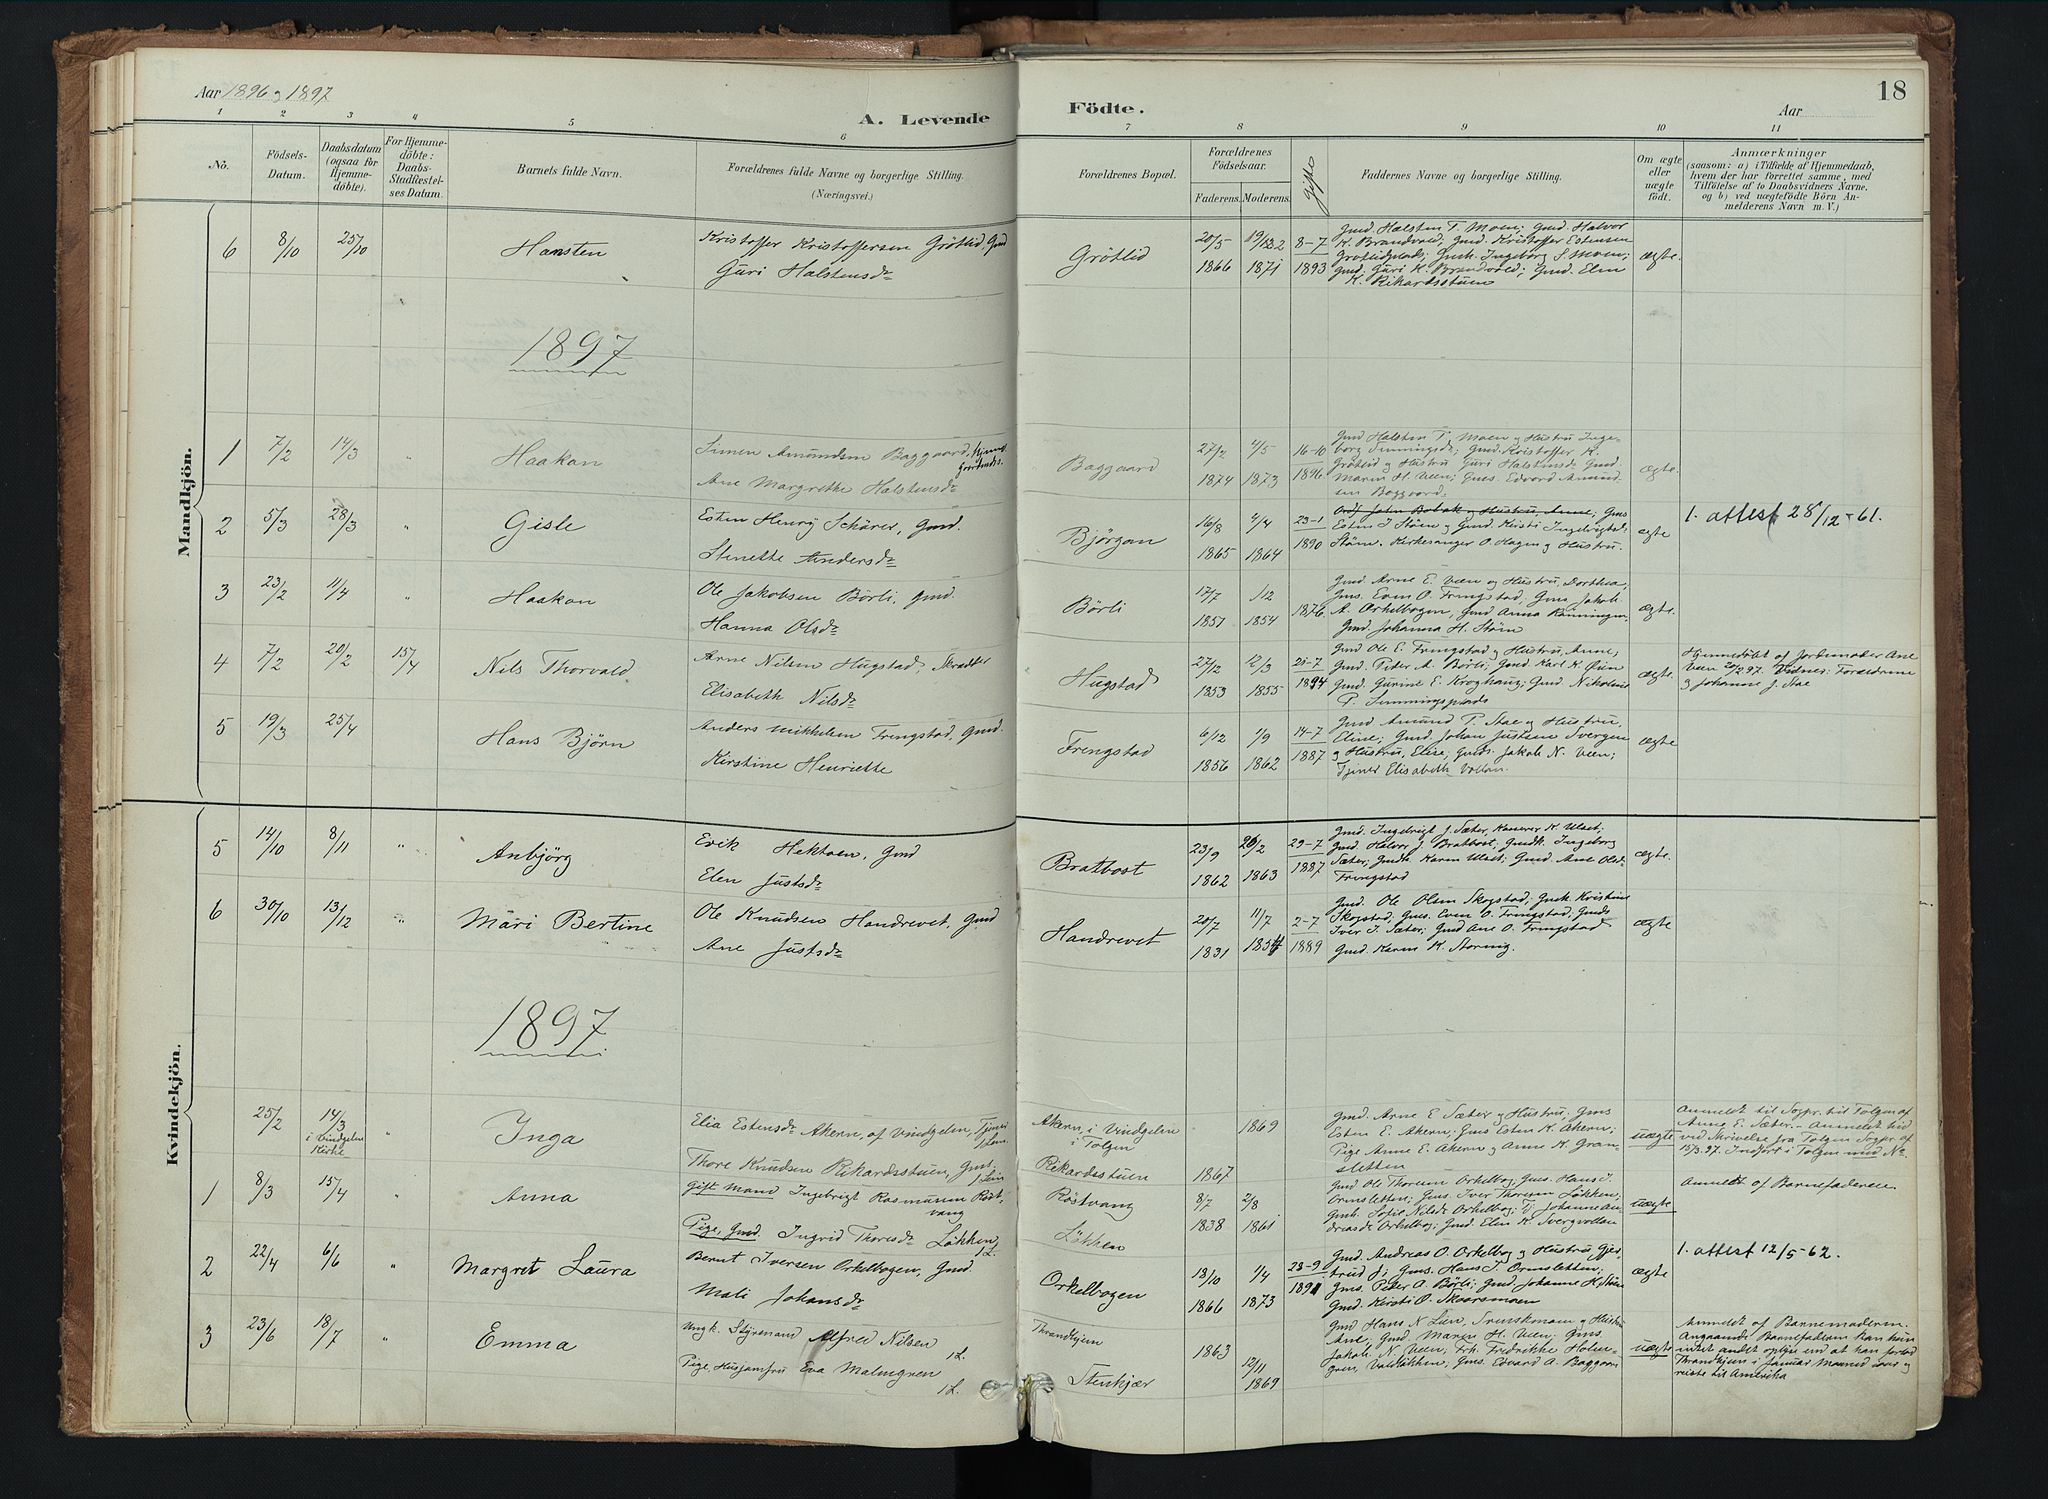 Aar 1896 og 1897
A. Levende Födte.
Aar
18
1 2 3 4 5 6 7 8 9 10 11
No.
Födsels-Datum.
Daabsdatum (ogsaa for Hjemmedöbte).
For Hjemmedöbte: Daabs-Stadfæstelses Datum.
Barnets fulde Navn.
Forældrenes fulde Navne og borgerlige Stilling. (Næringsvei.)
Forældrenes Bopæl.
Forældrenes Födselsaar.
Faderens. Moderens.
Gifte
Faddernes Navne og borgerlige Stilling.
Om ægte eller uægte födt.
Anmærkninger
(saasom: a) i Tilfælde af Hjemmedaab, hvem der har forrettet samme, med Tilföielse af to Daabsvidners Navne, og b) ved uægtefödte Börn Anmelderens Navn m. V.)
Mandkjön.
6 8/10 25/10 " Hansten
Kristoffer Kristoffersen Grötlid, Gmd
Guri Halstensdr
Grötlid
20/5 1866 19/12 1871 8-7 1893
Gmd. Halsten T. Moen; Gmd. Halvor
K. Brandvold; Gmd. Kristoffer Estensen
Grötlidplads; Gmk. Ingeborg S. Moen;
Gmd. Guri H. Brandvold; Gmd. Elen
K. Rikardsstuen
ægte.
1897
1 7/2 14/3 " Haakon
Simen Amundsen Baggaard,
Ane Margrethe Halstensdr
Baggaard
27/2 1874 4/5 1873 16-10 1896
Gmd Halsten T. Moen og Hustru Inge-
borg; Gmd. Kristoffer K.
Grötlid og Hustru Guri Halstensdr Gmd.
Maren H. Veen; Gms. Edvard Amund-
sen Baggaard.
ægte.
2 5/3 28/3 " Gisle
Esten Henry Schärer, Gmd.
Stenette Andersdr
Bjørgan
16/8 1865 4/4 1864 23-1 1890
John Bobak og Hustru, Anne; Gms
Esten J Stöen og Gmd. Kirsti Ingebrigtsdr
Stöen. Kirkesanger O. Hagen og Hustru.
ægte
1. attest 28/12-61.
3 23/2 11/4 " Haakon
Ole Jakobsen Börli, Gmd.
Hanna Olsdr
Börli
17/7 1851 1/12 1854 1876.
Gmd. Arne E. Veen og Hustru, Dorthea,
Gms. Even O. Frengstad; Gms Jakob
A. Orkelbogen, Gmd Anna Rönningen,
Gmd. Johanna H. Stöen
ægte.
4 7/2 20/2 15/4 Nils Thorvald
Arne Nilsen Hugstad, Skrædder
Elisabeth Nilsdr
Hugstad
27/12 1853 12/3 1855 25-7 1894
Gmd Ole E. Frengstad og Hustru, Anne;
Gmd. Peter A. Börli; Gmd. Karl K. Öien
Gmd. Gurine E. Kroghaug; Gmd. Nikolaus
P. Simmingsplads
ægte.
Hjemmedöbt af Jordemoder Ane
Veen 20/2.97. Vidner: Forældrene
og Johanne J. Stae
5 19/3 25/4 Hans Björn
Anders Mikkelsen Frengstad, Gmd.
Kirstine Henriette
Frengstad
6/12 1856 1/9 1862 14-7 1887
Gmd Amund P. Stae og Hustru,
Eline; Gmd. Johan Justsen Svergen
og Hustru, Elise; Gmds. Jakob N. Veen;
Tjener Elisabeth Vollan.
ægte
Kvindekjön.
5 14/10 8/11 " Anbjörg
Erik Hektoen, Gmd
Elen Justsdr
Bratbost
23/9 1862 26/2 1863 29-7 1887
Gmd. Ingebrigt J. Sæter, Kanerer K. Ulset;
Gmd. Halvor J. Bratbost, Gmdk. Ingeborg
Sæter; Gmdk. Karen Ulset; Gmd. Ane Olsdr
Frengstad
ægte.
6 30/10 13/12 " Mari Bertine
Ole Knudsen Handrevet, Gmd
Ane Justsdr
Handrevet
20/7 1831 11/7 1854 2-7 1889
Gmd. Ole Olsen Skogstad; Gmk Kristine
Skogstad; Gms. Even O. Frengstad; Gmds
Iver I. Sæter; Gmd Ane O. Frengstad
Gmd. Karen K. Storeng.
ægte
1897
25/2 14/3 i Vindgelen Kirke " Inga
Elia Estensdr Akern, af Vindgelen, Tjener
Thore Knudsen Rikardsstuen, Gms.
Akern, i Vindgelen
i Tolgen
Rikardsstuen
1867 1869
Gmd. Arne E. Sæter og Hustru; Gms
Esten E. Akern; Gms Esten K. Akern;
Pige Anne E. Akern og Anne K. Gran-
sletten
uægte
Anmeldt til Sogpr. til Tolgen af
Arne E. Sæter. - Anmeldt hid
ved Skrivelse fra Tolgen Sogpr. af
15/3.97. Indfört i Tolgen med No.
1 8/3 15/4 " Anna
Gift Mand Ingebrigt Rasmusen Röst-
vang
Pige, Gmd. Ingrid Thoresdr Løkken, 1L.
Röstvang
Løkken
8/7 1838 2/8 1861
Gmd Ole Thorsen Orkelbog, Gms. Hans J.
Ormsletten; Gms. Iver Thorsen Løkken,
Gmk. Sofie Nilsdr Orkelbog; Tj Johanne An-
dreasdr Orkelbog; Gmd. Elen K. Svergvollan
uægte
Anmeldt af Barnefaderen.
2 22/4 6/6 " Margret Laura
Bernt Iversen Orkelbogen, Gmd.
Mali Johansdr
Orkelbogen
13/10 1866 1/4 1873 23-9 1891
Gmd. Andreas O. Orkelbog og Hustru Gjer-
trud J; Gms. Hans J Ormsletten;
Gms. Peter A. Börli; Gmd. Johanne H. Stöen
Gmd. Kirsti O. Skaarsmoen
ægte
1. attest 12/5-62.
3 23/6 18/7 " Emma
Ungk. Styrmand Alfred Nilsen 1L.
Pige, Husjomfru Eva Malmgren 1L.
Throndhjem
Stenkjær
1863 12/11 1869
Gmd Hans N. Lien, Svenskmoen og Hustru
Ane, Gmd. Maren H. Veen; Gms.
Jakob N. Veen; Frk. Fredrikke Holm-
gren, Vaidlökken; Gms. Edvard A. Baggaard
uægte
Anmeldt af Barnemoderen.
Angaaende Barnefaderen kan hun
intet andet oplyse end at han forlod
Throndhjem i Januar Maaned iaar og
reiste til Amerika